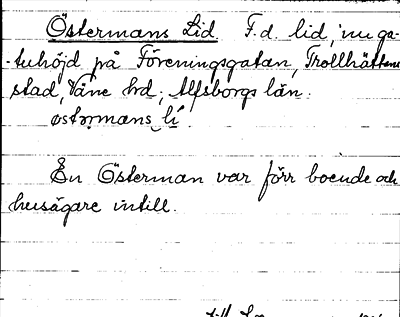 Östermans Lid. F.d. lid, nu ga-
-tuhöjd på Föreningsgatan, Trollhättans
stad, Väne hd, Älfsborgs län.
östərmans li.
En Österman var förr boende och
husägare intill.